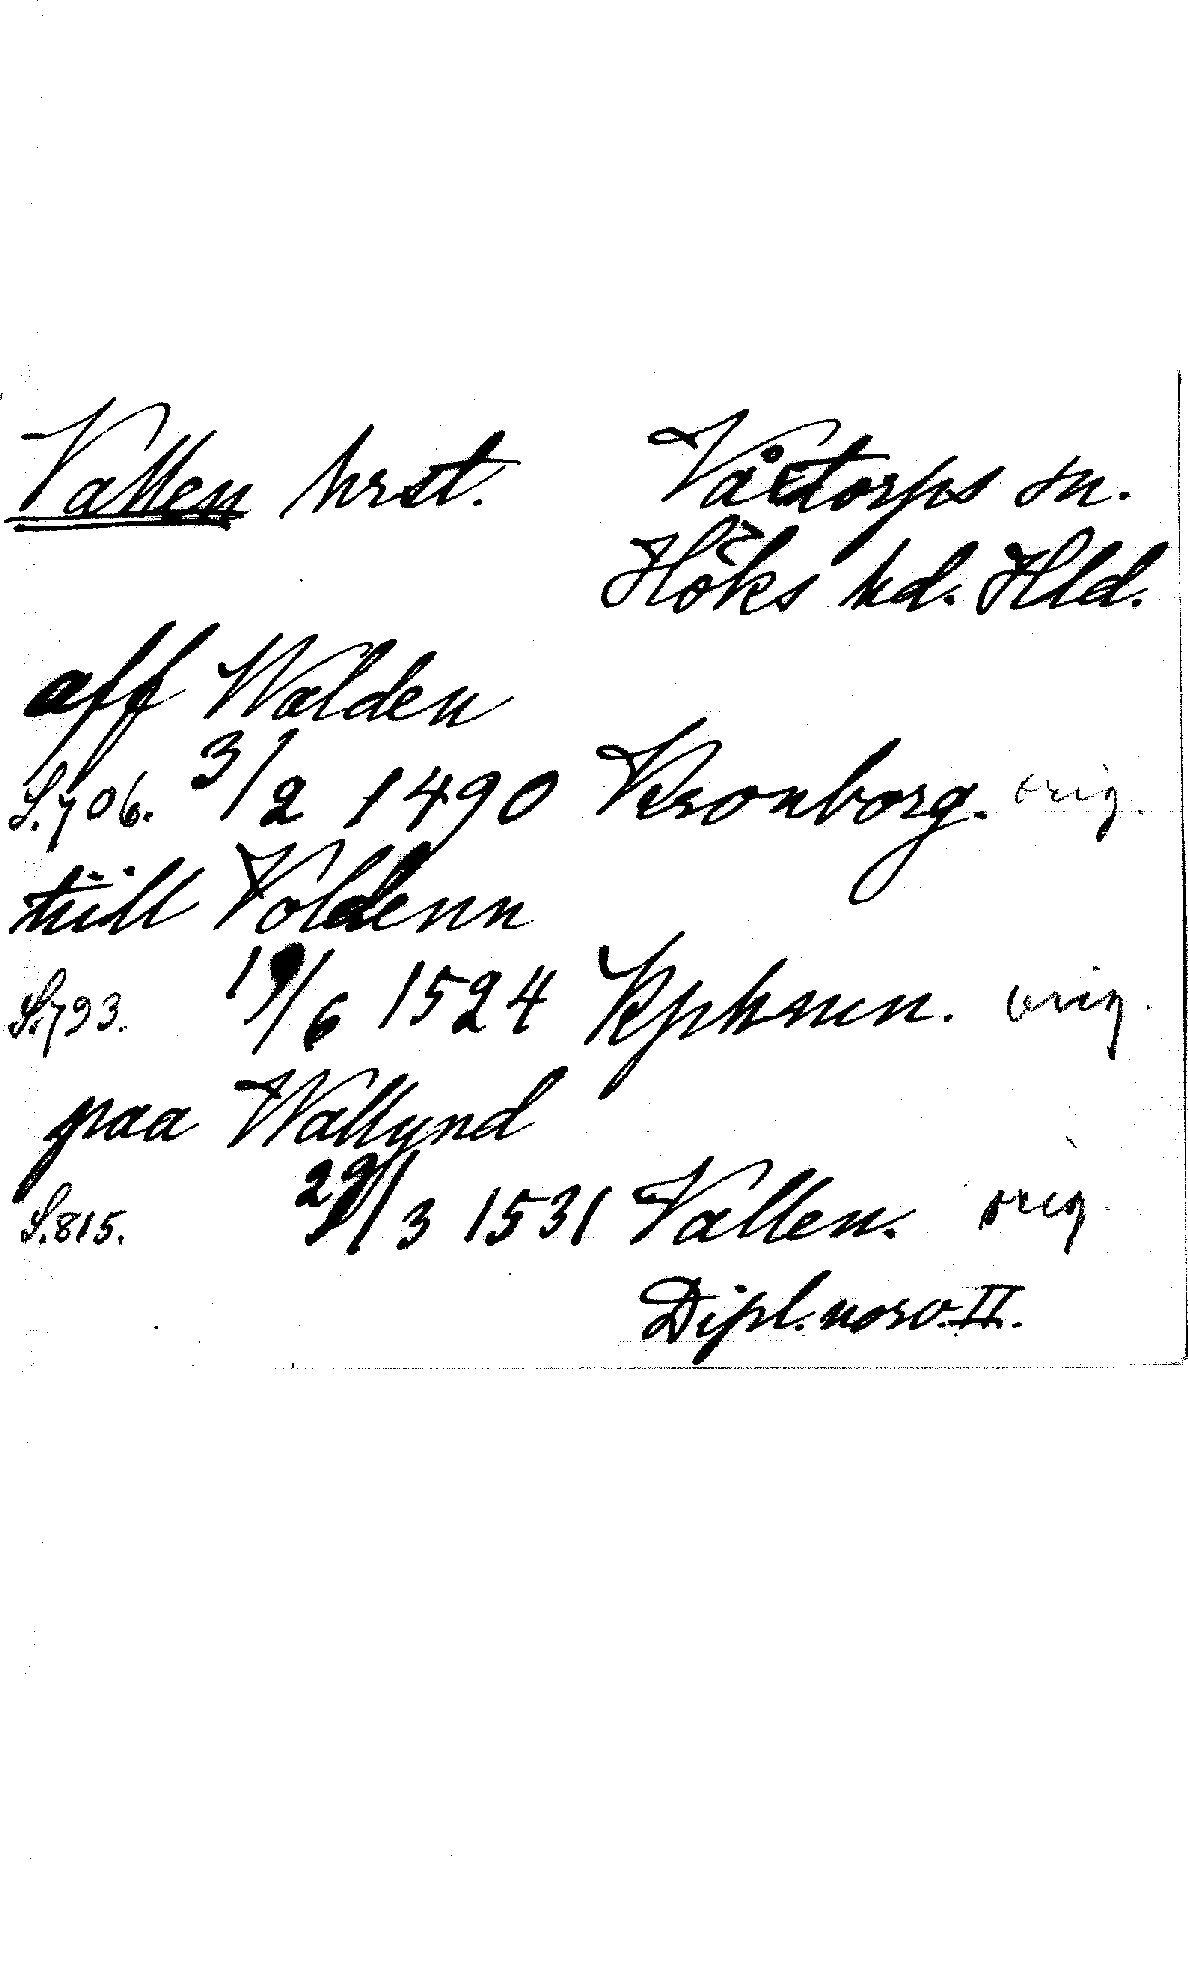 Vallen hrst. Våxtorps sn.
Höks hd. Hld.
aff Walden
S. 706. 3/2 1490 Kronborg. orig.
tiill Voldenn
S. 793. 19/6 1524 Kphmn. orig.
paa Wallynd
S. 815. 29/3 1531 Vallen. orig.
Dipl. norv. II.